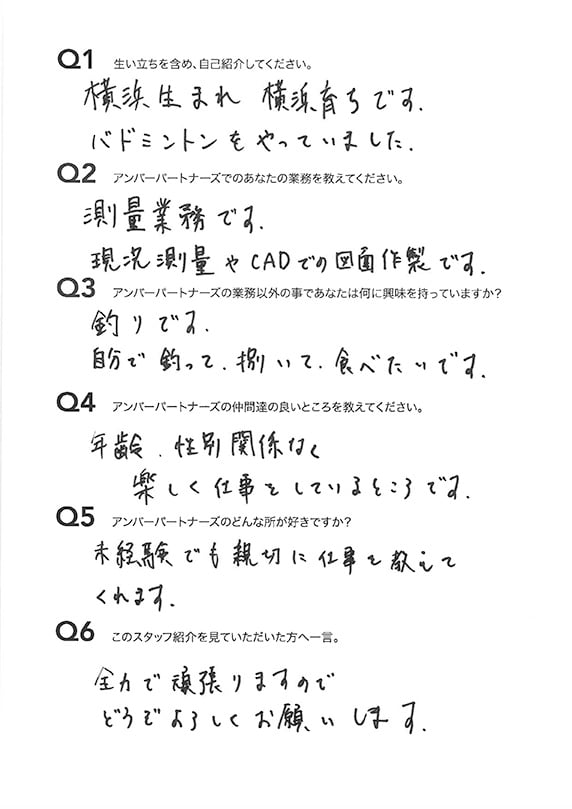 Q1 生い立ちを含め、自己紹介してください。
横浜生まれ 横浜育ちです.
バドミントンをやっていました.
Q2 アンバーパートナーズでのあなたの業務を教えてください。
測量業務です.
現況測量やCADでの図面作製です.
Q3 アンバーパートナーズの業務以外の事であなたは何に興味を持っていますか?
釣りです.
自分で釣って.捌いて.食べたいです.
Q4 アンバーパートナーズの仲間達の良いところを教えてください。
年齢.性別関係なく
楽しく仕事をしているところです.
Q5 アンバーパートナーズのどんな所が好きですか?
未経験でも親切に仕事を教えて
くれます.
Q6 このスタッフ紹介を見ていただいた方へ一言。
全力で頑張りますので
どうぞよろしくお願いします.